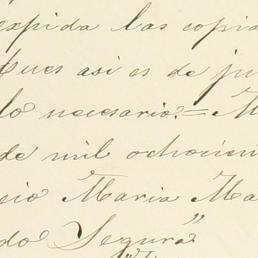 expida las copia
Pues asi es de ju
lo necesario.= M
de mil ochocien
cio Maria Ma
do Segura"